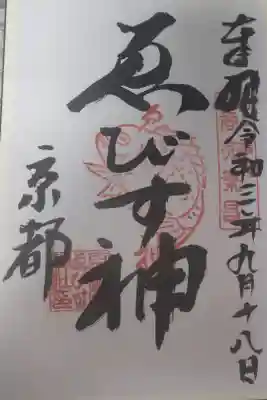 奉拝 令和三年九月十八日
ゑびす神
京都